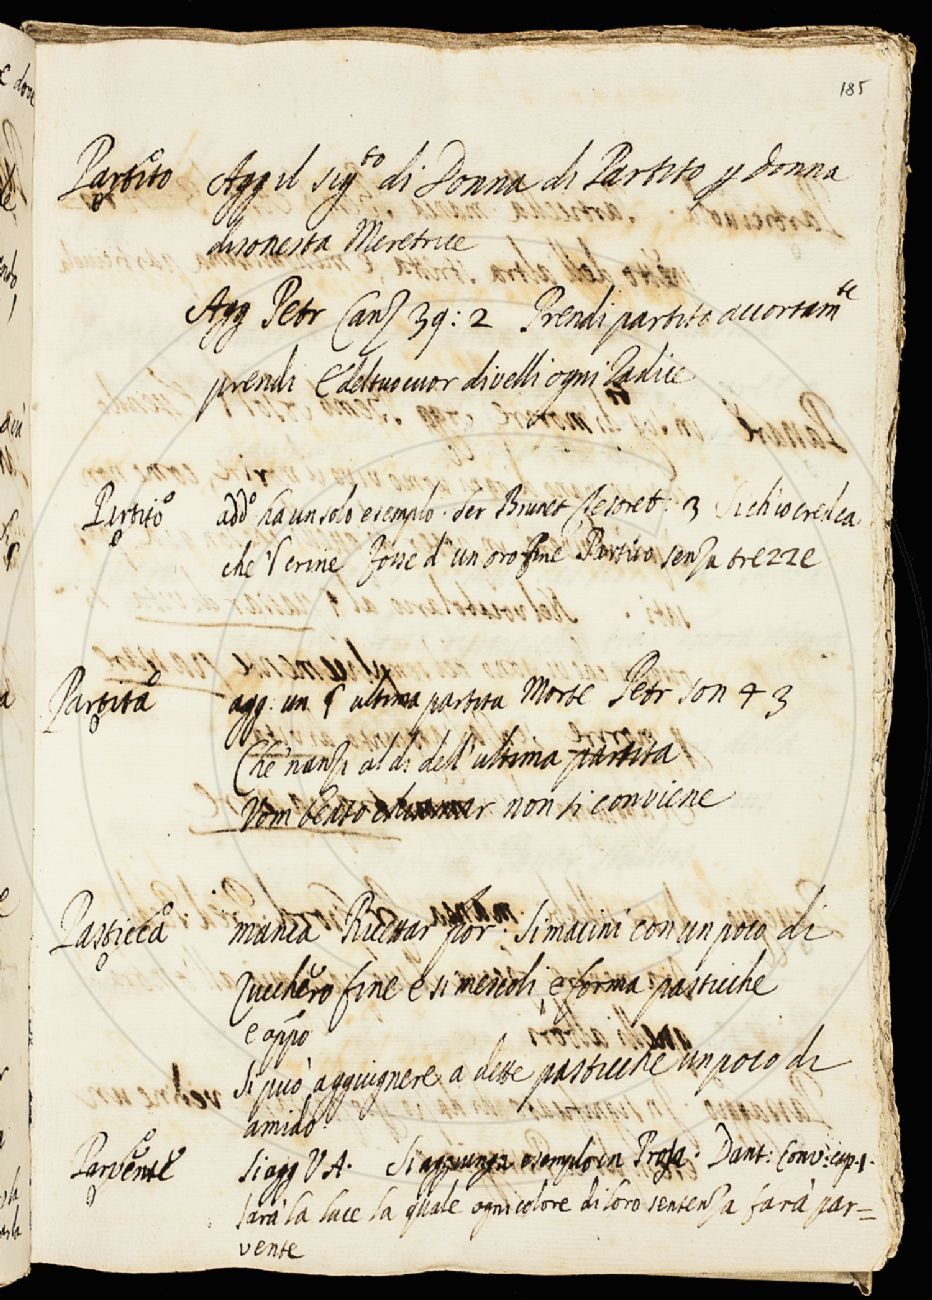 185
Partito Agg il sig.to di Donna di Partito p Donna
disonesta Meretrice
Agg Petr Canz 39: 2 Prendi partito accortam.te
prendi E del tuo cuor divelli ogni Radice
Partito add.o ha un solo esemplo. Ser Brunet Tesoret: 3 Sich'io credea
che 'l crine Fosse d'un oro fine Partito senza trezze
Partita agg: un § ultima partita Morte Petr son 43
Che 'nanzi al di dell'ultima partita
Vom beato chiamar non si conviene
Pasticca manca Ricettar fior: Si macini con un poco di
Zucchero fine e si mescoli, e forma pasticche
e appo
Si può aggiugnere a dette pasticche un poco di
amido.
Parvente Si agg V A. Si aggiunga esemplo in Prosa. Dant: Conv: cap. 1.
sarà la luce la quale ogni colore di loro sentenza farà par=
vente